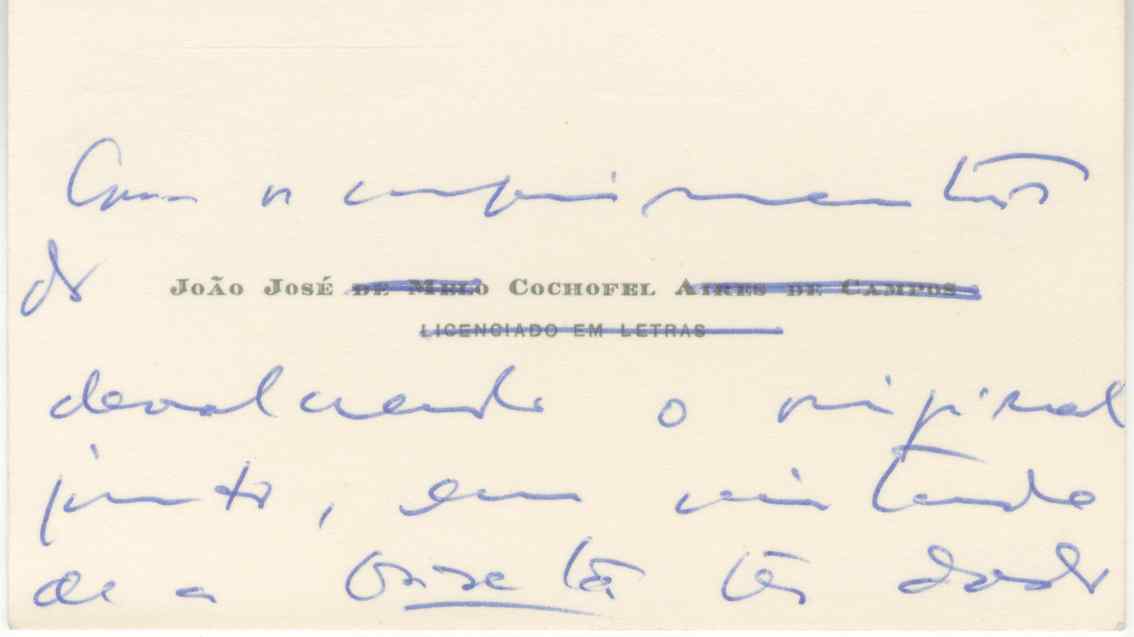 Com os cumprimentos
do João José de Melo Cochofel Aires de Campos
LICENCIADO EM LETRAS
devolvendo o original
junto, em virtude
de a Vértice ter dado